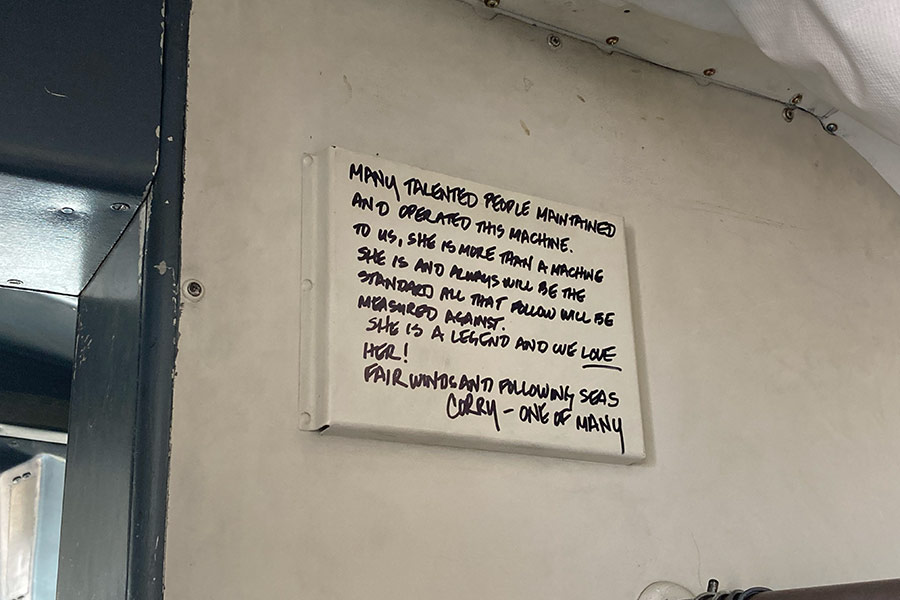 MANY TALENTED PEOPLE MAINTAINED
AND OPERATED THIS MACHINE.
TO US, SHE IS MORE THAN A MACHINE
SHE IS AND ALWAYS WILL BE THE
STANDARD ALL THAT FOLLOW WILL BE
MEASURED AGAINST.
SHE IS A LEGEND AND WE LOVE
HER!
FAIR WINDS AND FOLLOWING SEAS
CORRY - ONE OF MANY